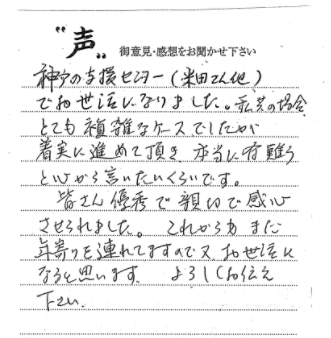 "声" 御意見・感想をお聞かせ下さい
神戸の支援センター（米田さん他）
でお世話になりました。私共の場合
とても複雑なケースでしたが
着実に進めて頂き 本当に有難う
と心から言いたいくらいです。
皆さん優秀で親切で感心
させられました。これからもまだ
年寄りを連れてますので又、お世話に
なると思います。よろしくお伝え
下さい。